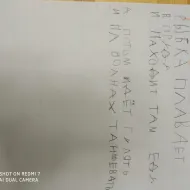 РЫБКА ПЛАВАЕТ
В ПРУДУ
И НАХОДИТ ТАМ ЕДУ
А ПОТОМ ИДЁТ ГУЛЯТЬ
И НА ВОЛНАХ ТАНЦЕВАТЬ
SHOT ON REDMI 7
AI DUAL CAMERA